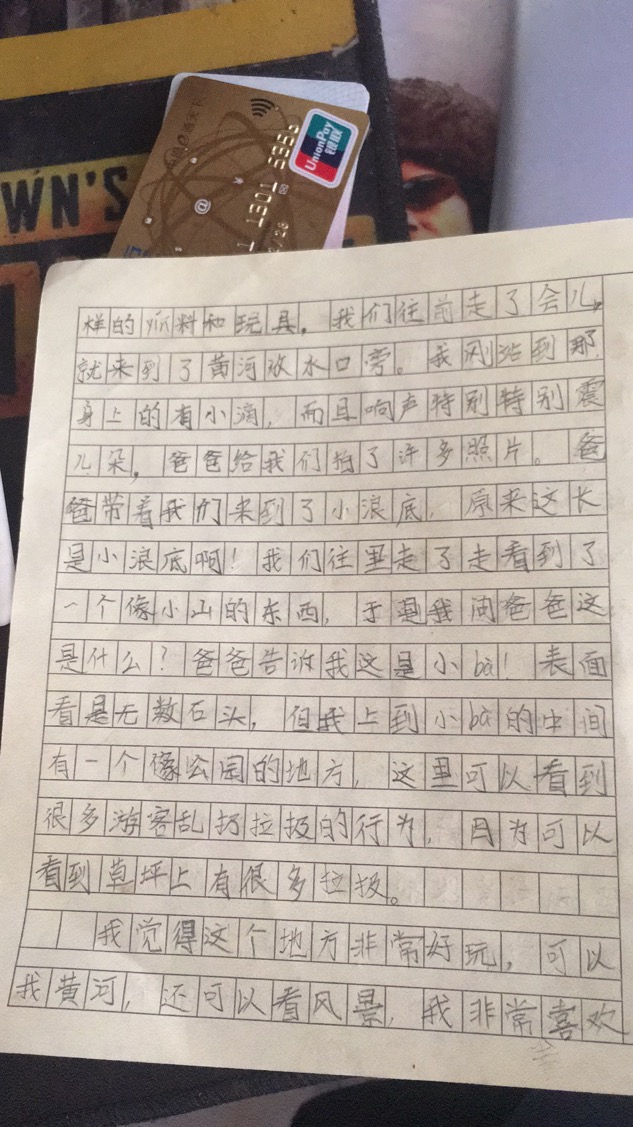 WN'S
UnionPay
银联
@
1 1301 595
/28
样的yǐn料和玩具，我们往前走了会儿，
就来到了黄河放水口旁。我刚站到那
身上的有小滴，而且响声特别特别震
儿朵，爸爸给我们拍了许多照片。爸
爸带着我们来到了小浪底，原来这长
是小浪底啊！我们往里走了走看到了
一个像小山的东西，于是我问爸爸这
是什么？爸爸告诉我这是小bà！表面
看是无数石头，但我上到小bà的中间
有一个像公园的地方，这里可以看到
很多游客乱扔拉圾的行为，因为可以
看到草坪上有很多拉圾。
我觉得这个地方非常好玩，可以
我黄河，还可以看风景，我非常喜欢